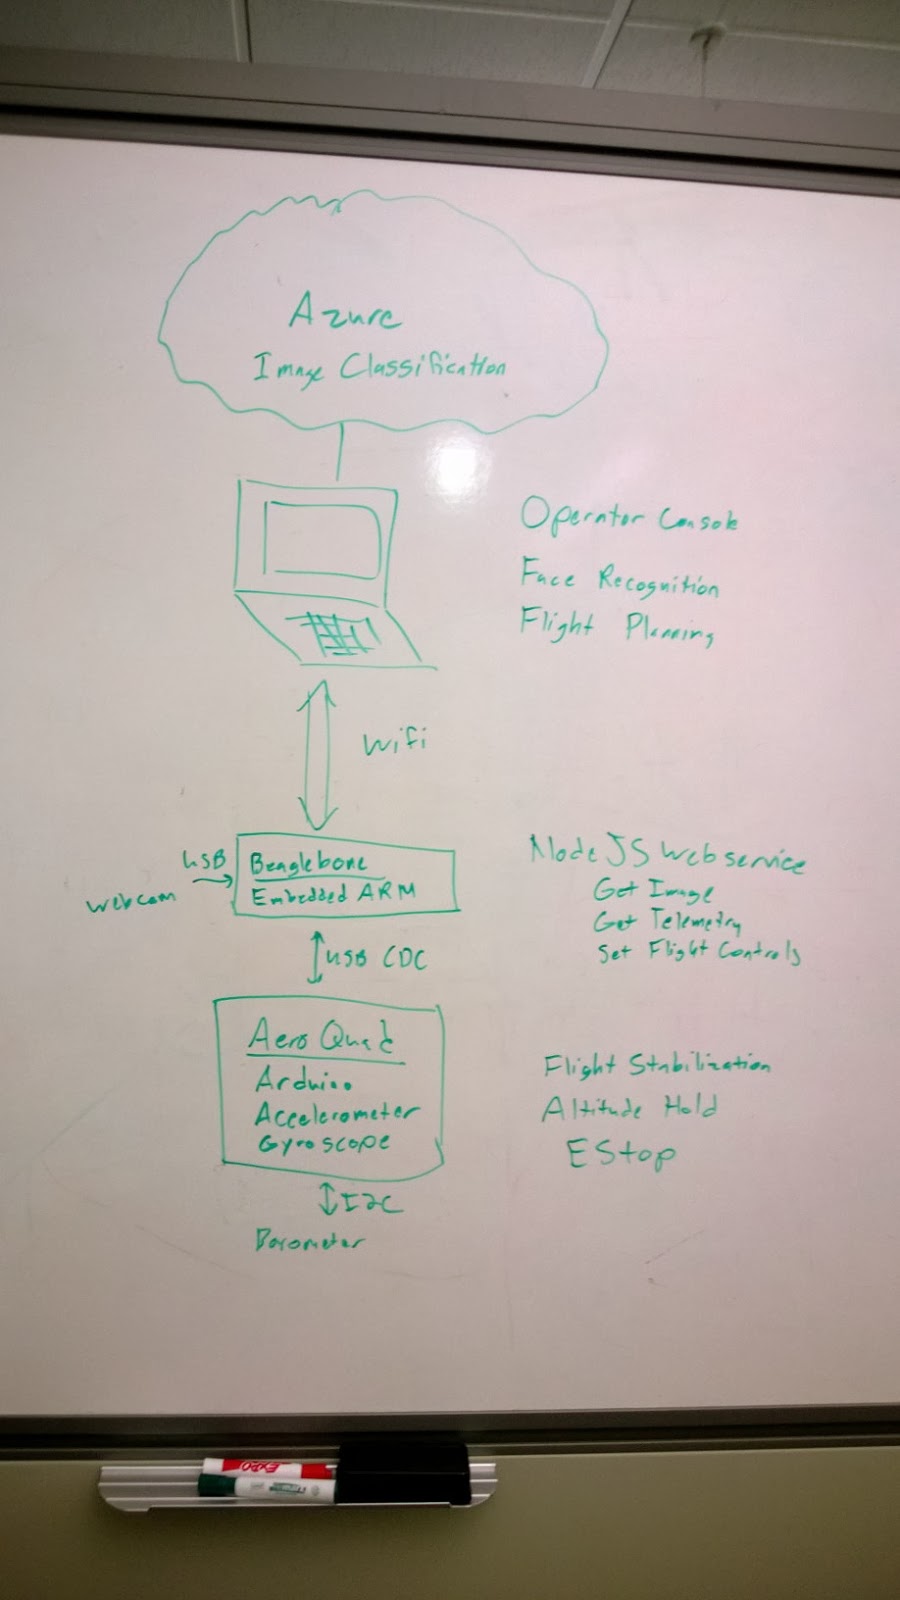 Azure
Image Classification
Operator Console
Face Recognition
Flight Planning
Wifi
USB
Webcam
Beaglebone
Embedded ARM
NodeJS Webservice
Get Image
Get Telemetry
Set Flight Controls
USB CDC
AeroQuad
Arduino
Accelerometer
Gyroscope
Flight Stabilization
Altitude Hold
EStop
I2C
Barometer
EXPO